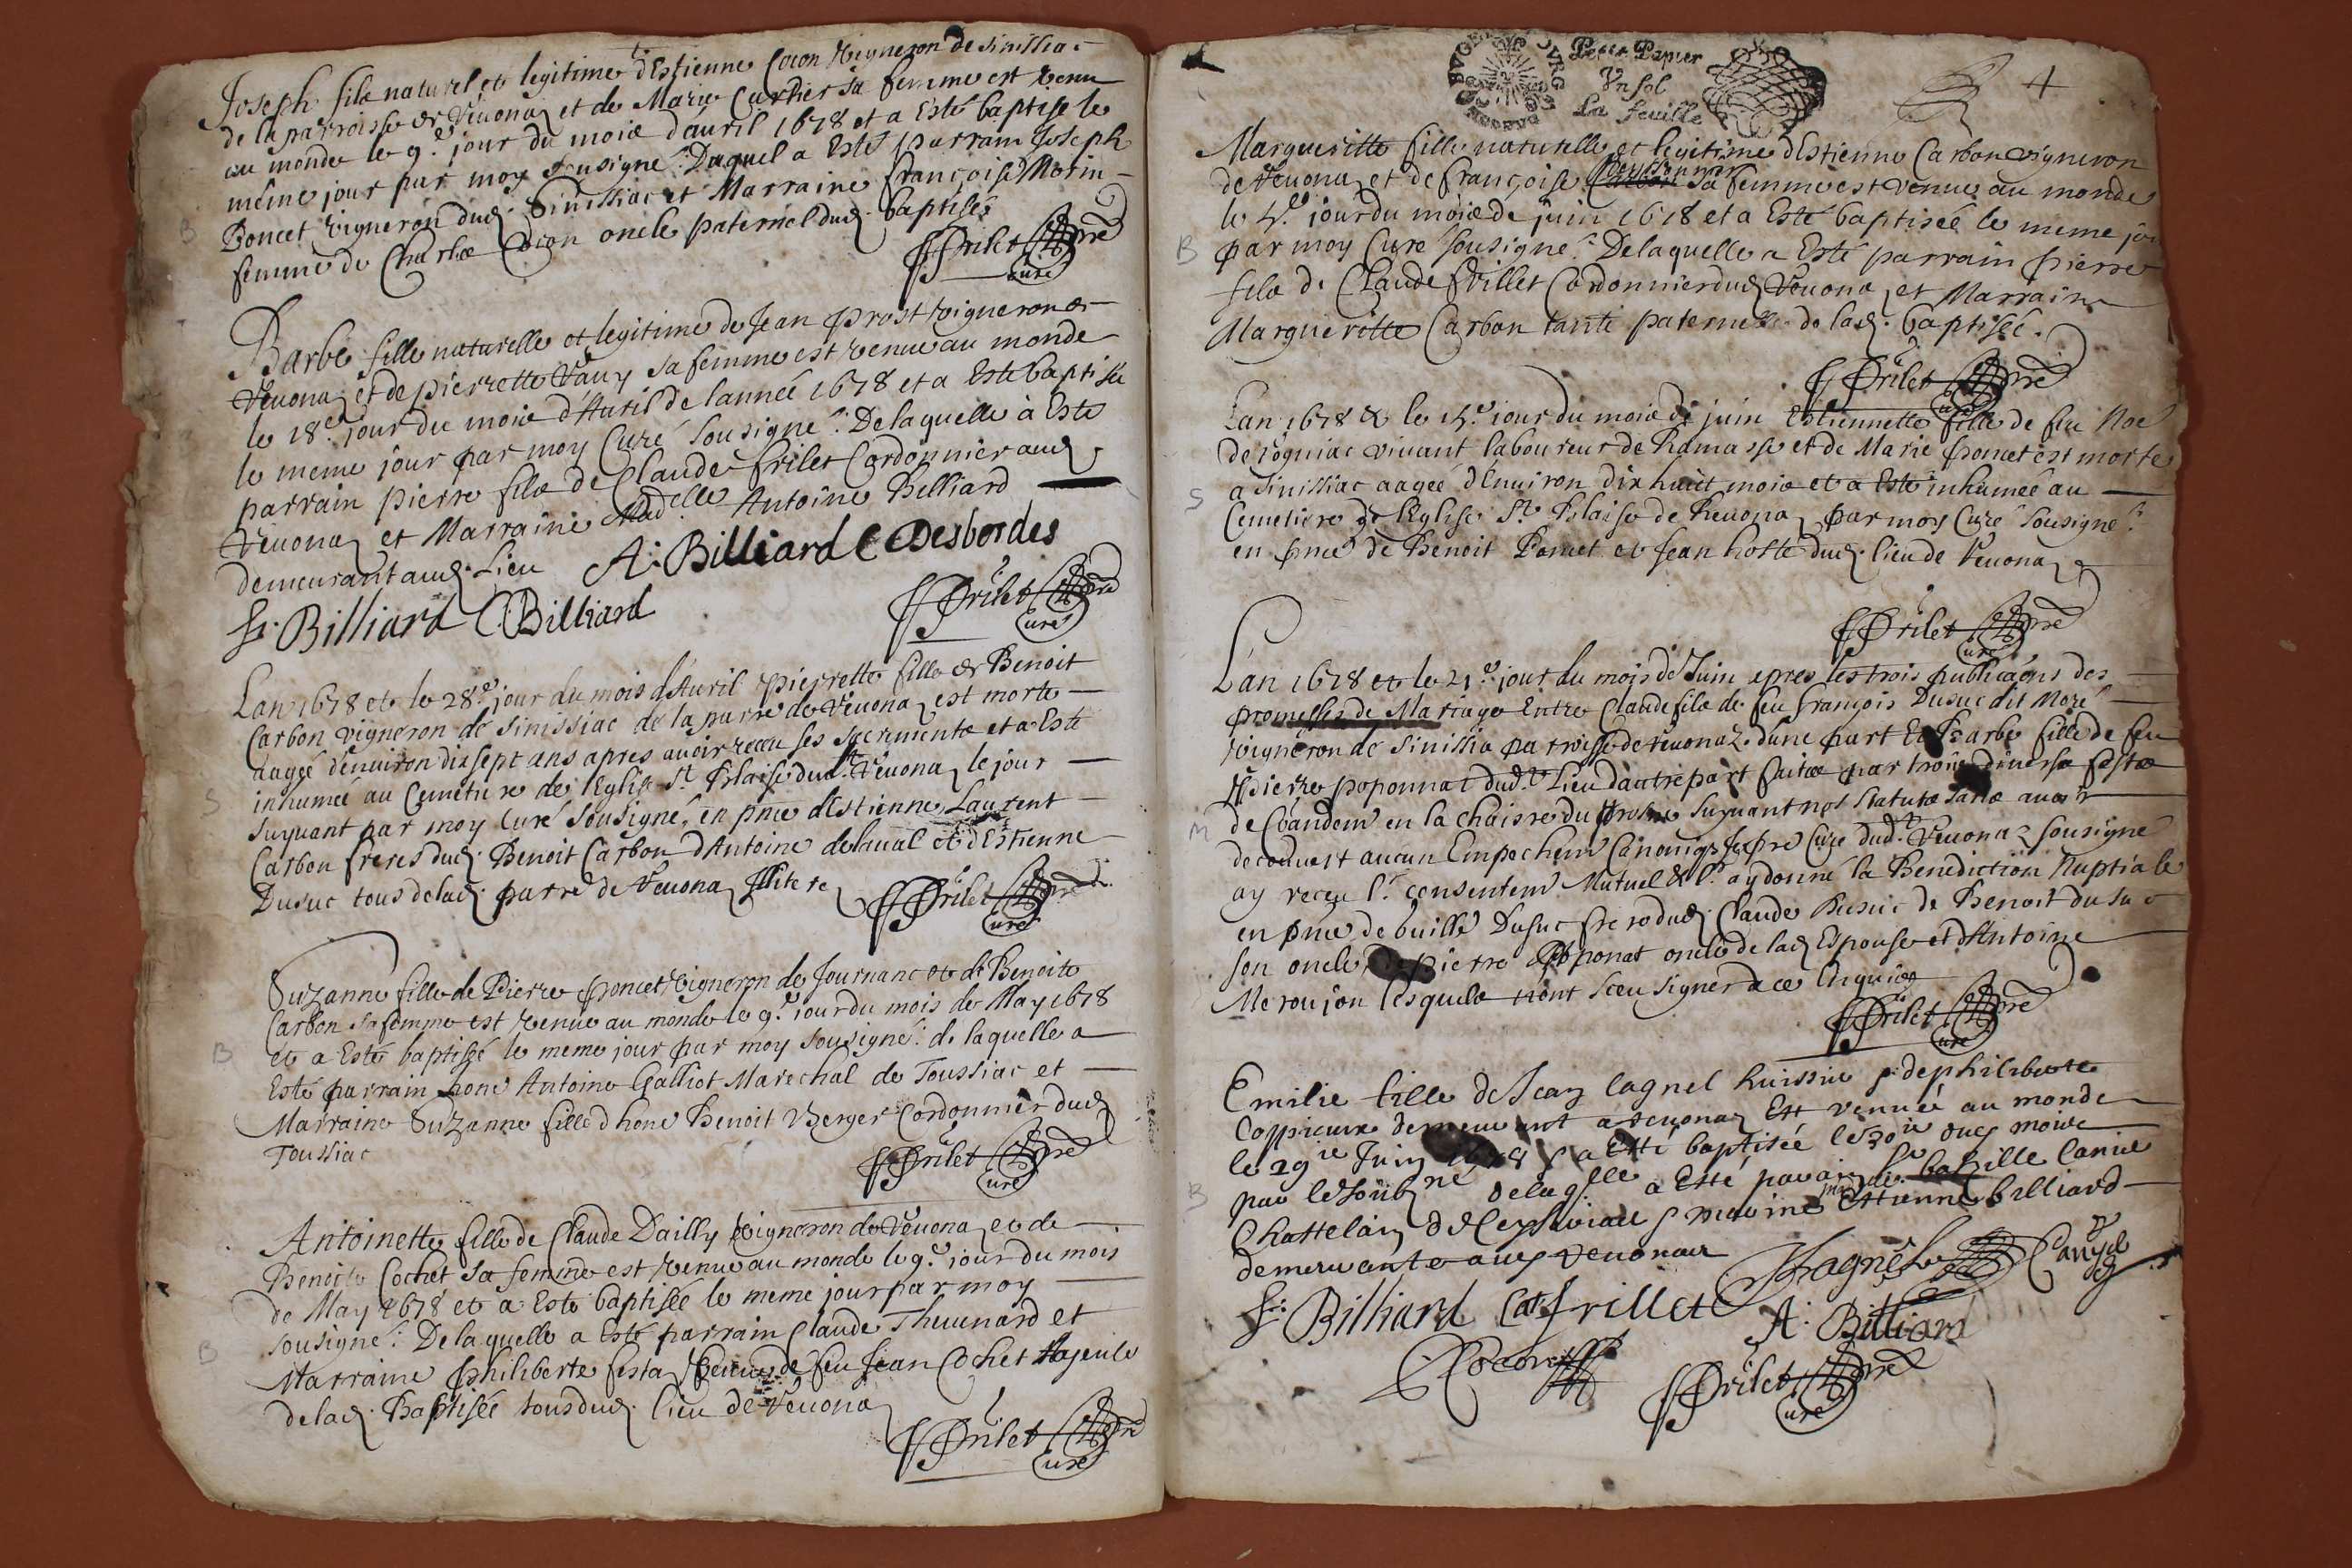 Joseph fils naturel et legitime d'Estienne Cocon Vigneron de Sinissiac
de la parroisse de Veuona et de Marie Cartier sa femme est venu
au monde le 9.e jour du mois d'auril 1678 et a Esté baptisé le
même jour par moy sousigné: Duquel a Esté parrain Joseph
Poncet vigneron dud. Sinissiac et Marraine françoise Morin
B
femme de Charle Cocon oncle paternel dud. baptisé
Frilet pre
Curé
Barbe fille naturelle et legitime de Jean Prost vigneron de
Veuona et de pierrette Vauy sa femme est venue au monde
le 18.e jour du mois d'Auril de lannée 1678 et a Esté baptisée
le meme jour par moy Curé Sousigné: De laquelle à Esté
parrain pierre fils de Claude frilet Cordonnier aud.
Veuona et Marraine Mad.elle Antoine Billiard
demeurant aud. Lieu A: Billiard C Desbordes
fr. Billiard C. Billiard Frilet pre
Curé
Lan 1678 et le 28.e jour du mois d'Auril pierrette fille de Benoit
Carbon vigneron de Sinissiac de la parre de Veuona est morte
aagée denuiron dix sept ans apres auoir receu ses sacrements et a Esté
inhumée au Cemetiere de l'Eglise S.t Blaise dud.t Veuona le jour
S
suyuant par moy Curé Sousigné, en pnce d'Estienne Laurent
Carbon freres dud. Benoit Carbon d'Antoine delaual et d'Estienne
Dusuc tous de lad. parre de Veuona Illitere Frilet pre
Curé
Suzanne fille de Pierre poncet vigneron de Journanc et de Benoite
Carbon sa femme est venue au monde le 9.e jour du mois de May 1678
B
et a Esté baptisée le meme jour par moy sousigné: de laquelle a
Esté parrain hone Antoine Galliot Marechal de Toussiac et
Marraine Suzanne fille d'hone Benoit Verger Cordonnier dud.
Toussiac Frilet pre
Curé
Antoinette fille de Claude Dailly vigneron de Veuona et de
Benoite Cochet sa femme est venue au monde le 9.e jour du mois
de May 1678 et a Esté baptisée le meme jour par moy
sousigné: De laquelle a Esté parrain Claude Theuenard et
B
Marraine philiberte festa Veuue de feu Jean Cochet Hayeule
de lad. Baptisée tous dud. lieu de Veuona
Frilet pre
Curé
Petit Papier
Vn sol
La feuille
4
Margueritte fille naturelle et legitime d'Estienne Carbon vigneron
de Veuona et de françoise sa femme est venue au monde
le 4.e jour du mois de juin 1678 et a Esté baptisée le meme jou
B
par moy Curé Sousigné: De laquelle a Esté parrain pierre
fils de Claude frillet Cordonnier dud. Veuona et Marraine
Marguerite Carbon tante paternelle de lad. baptisée.
Frilet pre
Curé
Lan 1678 & le 14.e iour du mois de juin Estiennette fille de feu Noel
derogniac viuant laboureur de Ramasse et de Marie poncet est morte
S
a Sinissiac aagée d'Enuiron dix huict mois et a Esté inhumée au
Cemetiere de l'Eglise S.t Blaise de Veuona par moy Curé Sousigné:
en pnce de Benoit Poncet et Jean hoste dud. lieu de Veuona
Frilet pre
Curé
L'an 1678 et le 21.e jour du mois de Juin apres les trois publicaons des
promesses de Mariage Entre Claude fils de feu François Dusuc dit Moré
vigneron de Sinissia paroisse de Veuonaz dune part Et Barbe fille de feu
Pierre poponnat dud.t Lieu dautre part faitte par trois diuerse feste
M
de Coandem en la chaisre du prosne suyuant nos statuts sans auoir
decouuert aucun Empechem Canoniq Je pre Cure dud.t Veuonaz sousigné
ay receu l.r consentem Mutuel & l.r ay donné la Benediction Nuptiale
en pnce de buille Dusuc frere dud. Claude Dusuc de Benoit dusuc
son oncle pierre Poponat oncle de lad. Espouse et d'Antoine
Meroujon lesquels n'ont sceu signer a ce Enquis
Frilet pre
Curé
Emilie fille de Jean lagnel huissier & de philiberte
Coppieure demeurant a veuonaz Est venuë au monde
le 29ie Juin 1678 & a Esté baptisée le 30ie dud. mois
par le soubne de laqlle a Esté parain Canue
B
Chattelain & maraine Ettienne billiard
demeurante aud. veuonaz Lagnel Canyd
fr: Billiard Cat. frillet A: Billiard
Frilet pre
Curé